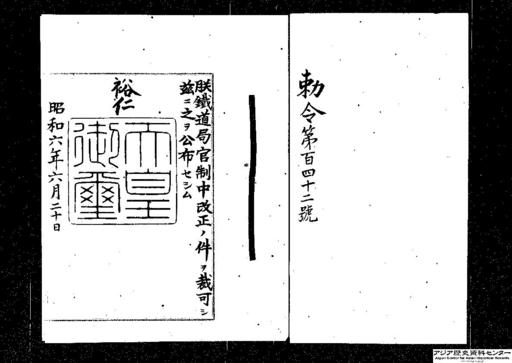 勅令第百四十二號
朕鐵道局官制中改正ノ件ヲ裁可シ
玆ニ之ヲ公布セシム
裕仁
天皇御璽
昭和六年六月二十日
アジア歴史資料センター
Japan Center for Asian Historical Records